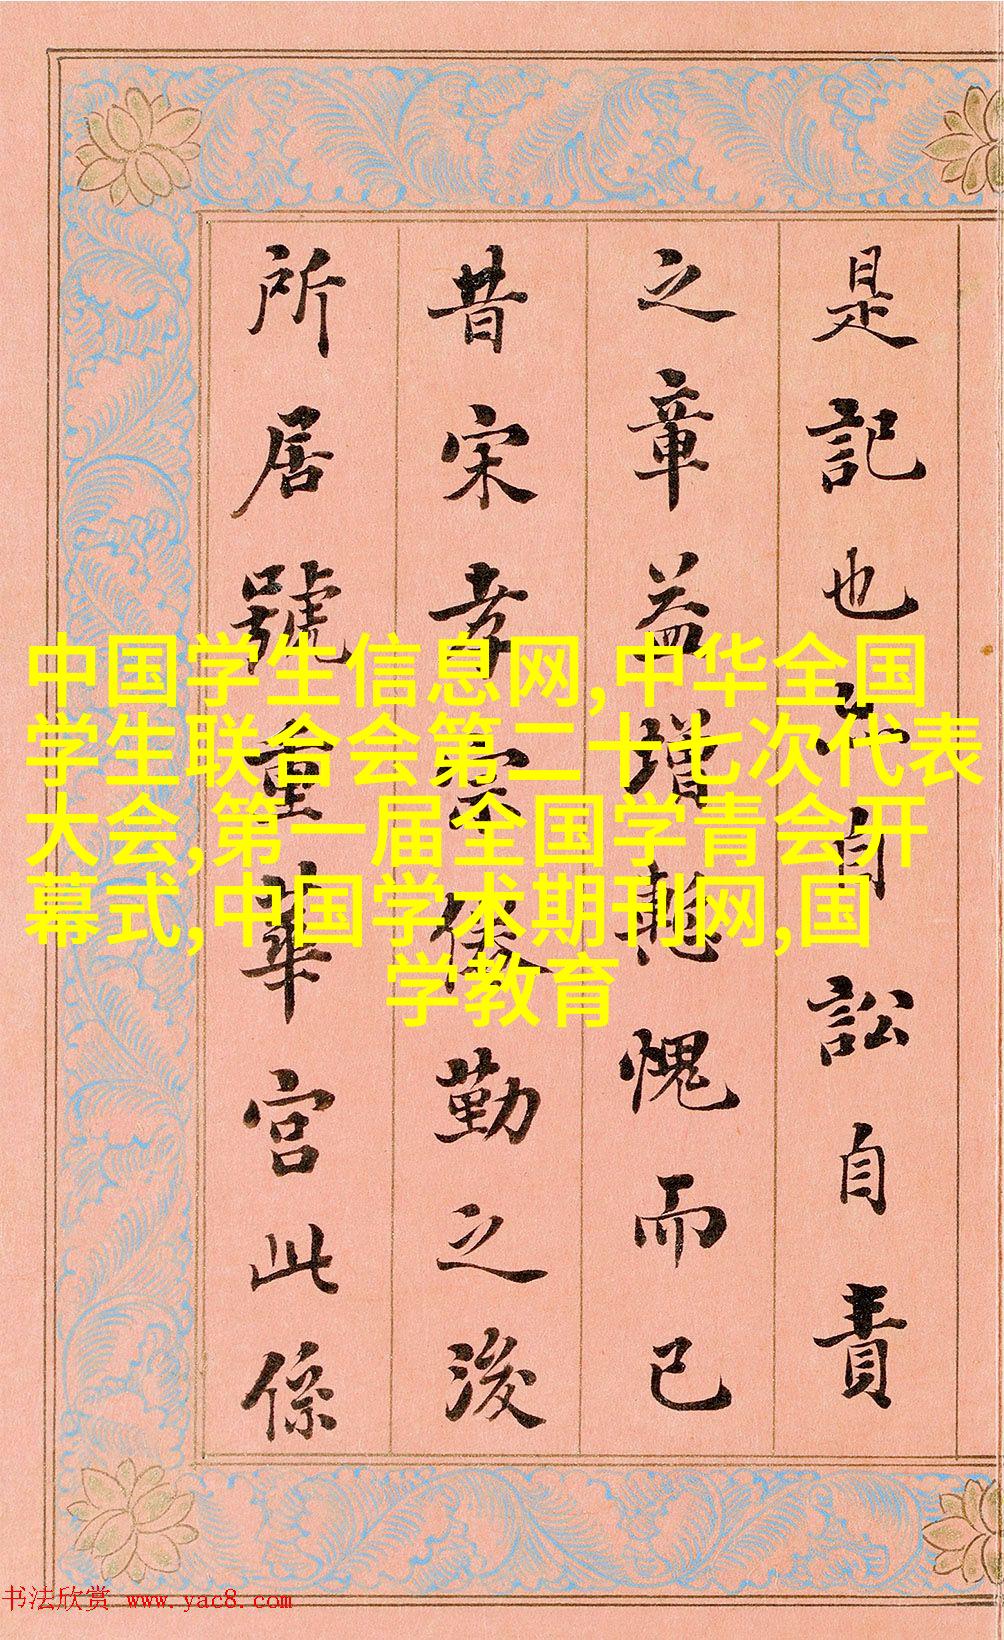 是記也亦自訟自責
之章益增慙愧而已
昔宋孝宗倦勤之後
所居號重華宮此係
中国学生信息网,中华全国
学生联合会第二十七次代表
大会,第一届全国学青会开
幕式,中国学术期刊网,国
学教育
书法欣赏 www.yac8.com